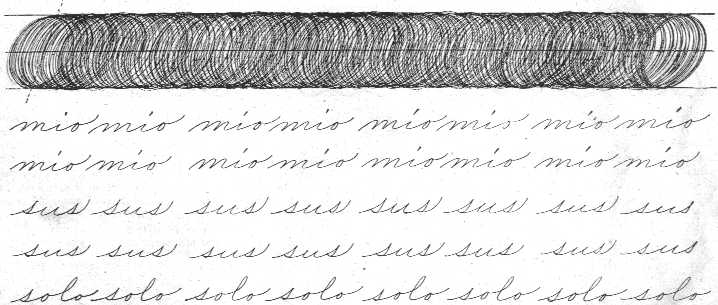 mio mio mio mio mio mio mio mio
mio mio mio mio mio mio mio mio
sus sus sus sus sus sus sus sus
sus sus sus sus sus sus sus sus
solo solo solo solo solo solo solo solo